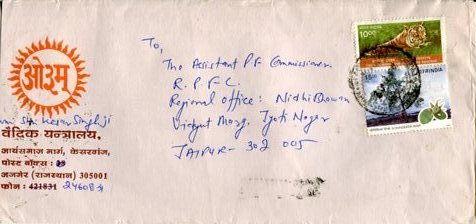 ओ३म्
वैदिक यन्त्रालय,
आर्यसमाज मार्ग, केसरगंज,
पोस्ट बॉक्स :
अजमेर (राजस्थान) 305001
फोन : 421831 24608
To,
The Assistant P.F. Commissioner
R.P.F.C.
Regional office : Nidhi Bhawan
Vidyut Marg, Jyoti Nagar
JAIPUR - 302 005
10.00
भारत INDIA